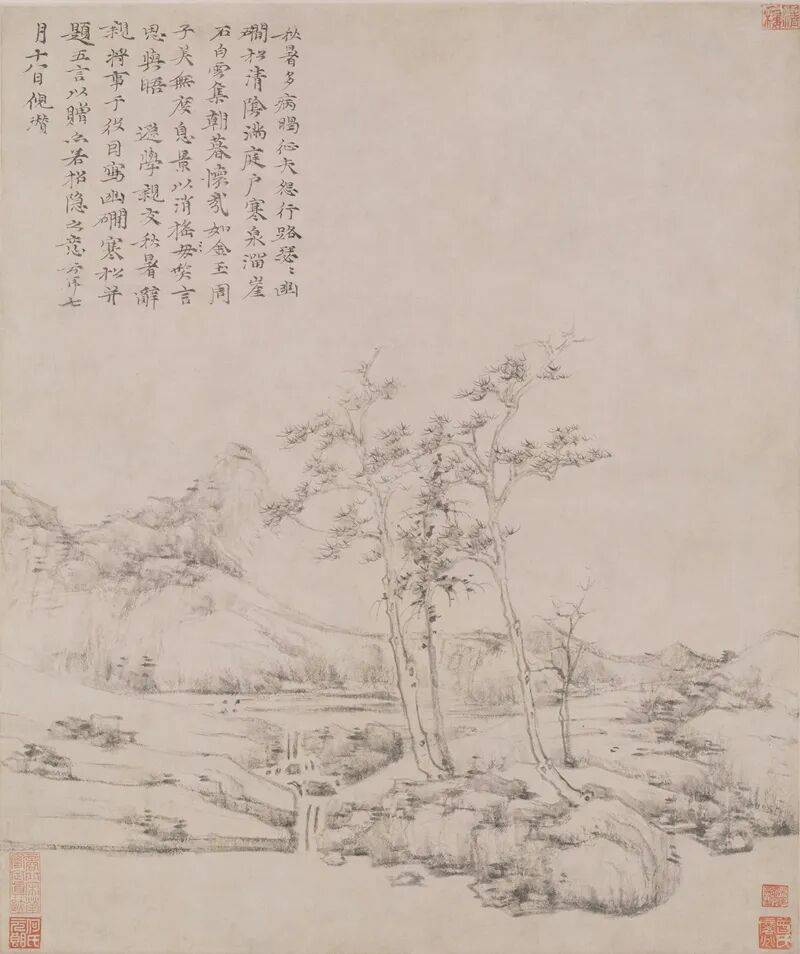 秋暑多病暍征夫怨行路瑟〻幽
磵松清陰滿庭戶寒泉溜崖
石白雲集朝暮懷哉如金玉周
子美無度息景以消搖笑言
思與晤 遜學親友秋暑辭
親將事于役因寫幽磵寒松并
題五言以贈亦若招隱之意云耳七
月十八日倪瓚
何氏元朗